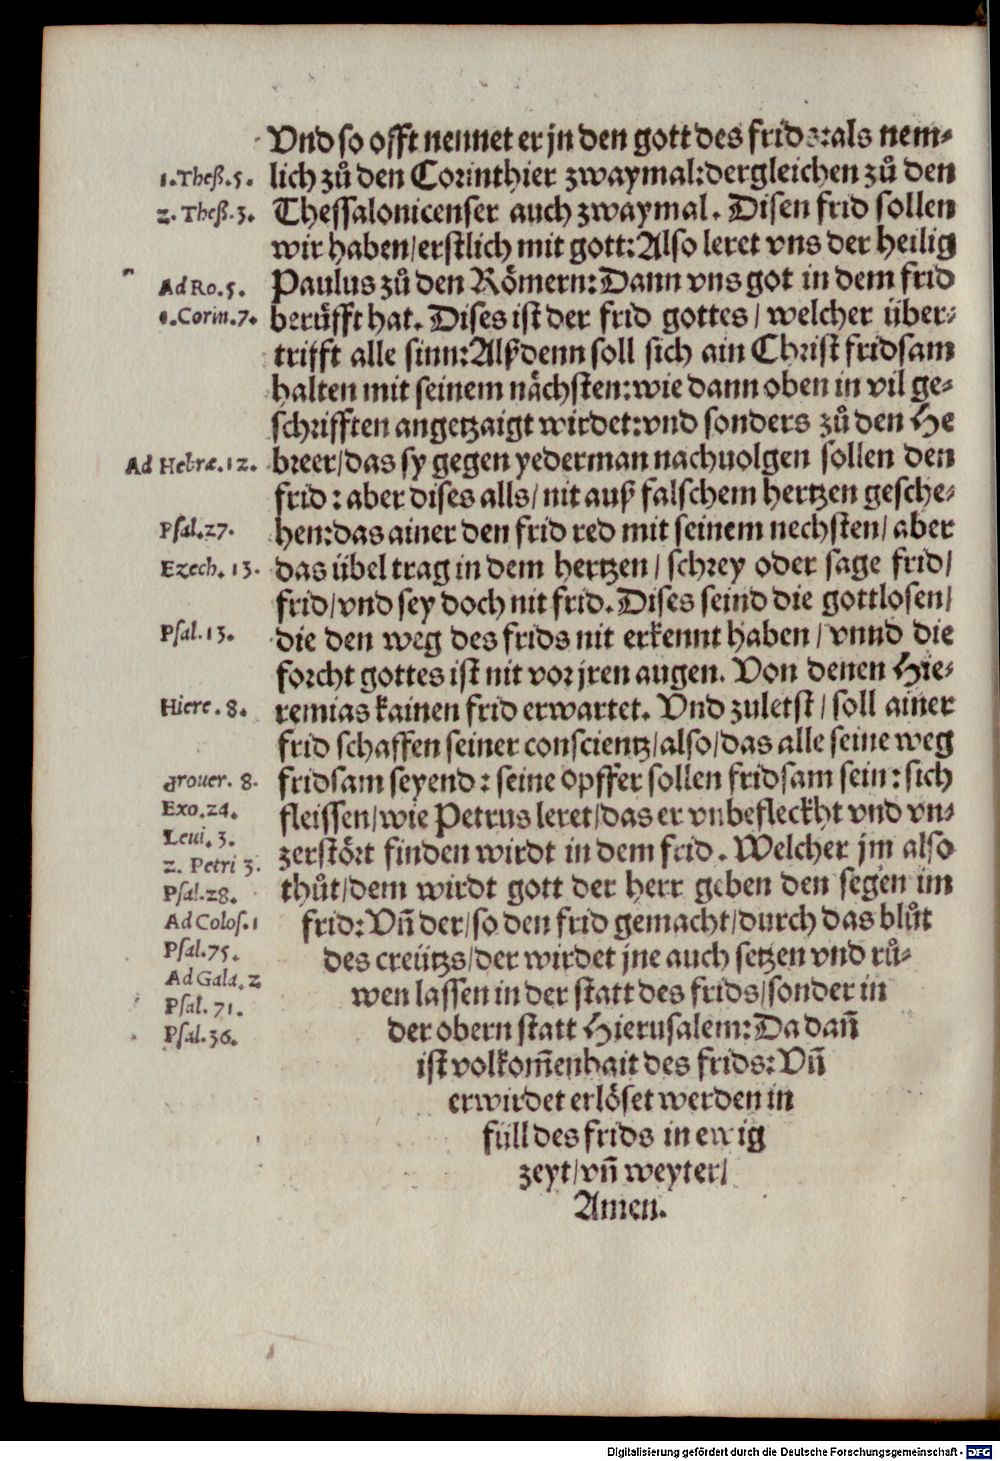 Vnd so offt nennet er jn den gott des frids: als nem-
1. Theß. 5. lich zů den Corinthier zwaymal: dergleichen zů den
2. Theß. 3. Thessalonicenser auch zwaymal. Disen frid sollen
wir haben/ erstlich mit gott: Also leret vns der heilig
Ad Ro. 5. Paulus zů den Römern: Dann vns got in dem frid
Corin. 7. berüfft hat. Dises ist der frid gottes/ welcher über-
trifft alle sinn: Alßdenn soll sich ain Christ fridsam
halten mit seinem nächsten: wie dann oben in vil ge-
schrifften angetzaigt wirdet: vnd sonders zů den He
Ad Hebræ. 12. breer/ das sy gegen yederman nachuolgen sollen den
frid: aber dises alls/ nit auß falschem hertzen gesche-
Psal. 27. hen: das ainer den frid red mit seinem nechsten/ aber
Ezech. 13. das übel trag in dem hertzen/ schrey oder sage frid/
frid/ vnd sey doch nit frid. Dises seind die gottlosen/
Psal. 13. die den weg des frids nit erkennt haben/ vnnd die
forcht gottes ist nit vor jren augen. Von denen Hie-
Hiere. 8. remias kainen frid erwartet. Vnd zuletst/ soll ainer
frid schaffen seiner conscientz/ also/ das alle seine weg
prouer. 8. fridsam seyend: seine opffer sollen fridsam sein: sich
Exo. 24. fleissen/ wie Petrus leret/ das er vnbefleckht vnd vn-
Leui. 3. zerstört finden wirdt in dem frid. Welcher jm also
2. Petri 3. thůt/ dem wirdt gott der herr geben den segen im
Psal. 28. frid: Vñ der/ so den frid gemacht/ durch das blůt
Ad Colos. 1 des creützs/ der wirdet jne auch setzen vnd rů-
Psal. 75. wen lassen in der statt des frids/ sonder in
Ad Gala. 2 der obern statt Hierusalem: Da dañ
Psal. 71. ist volkom̃enhait des frids: Vñ
Psal. 36. er wirdet erlöset werden in
füll des frids in ewig
zeyt/ vñ weyter/
Amen.
Digitalisierung gefördert durch die Deutsche Forschungsgemeinschaft - DFG